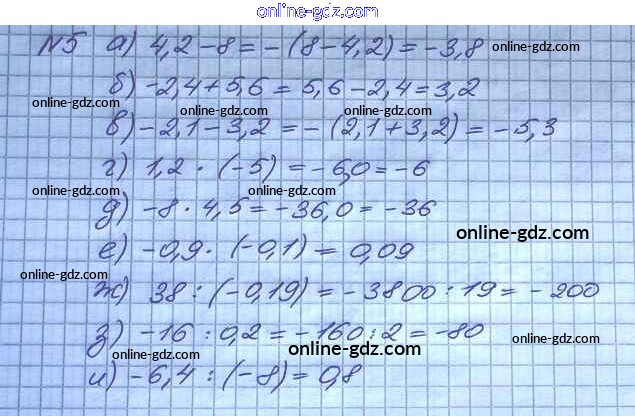 online-gdz.com
N5 а) 4,2-8=-(8-4,2)=-3,8
online-gdz.com
б) -2,4+5,6=5,6-2,4=3,2
online-gdz.com online-gdz.com
в) -2,1-3,2=-(2,1+3,2)=-5,3
online-gdz.com
г) 1,2·(-5)=-6,0=-6
online-gdz.com online-gdz.com
д) -8·4,5=-36,0=-36
online-gdz.com
е) -0,9·(-0,1)=0,09
online-gdz.com
ж) 38:(-0,19)=-3800:19=-200
online-gdz.com
з) -16:0,2=-160:2=-80
online-gdz.com online-gdz.com
и) -6,4:(-8)=0,8
online-gdz.com